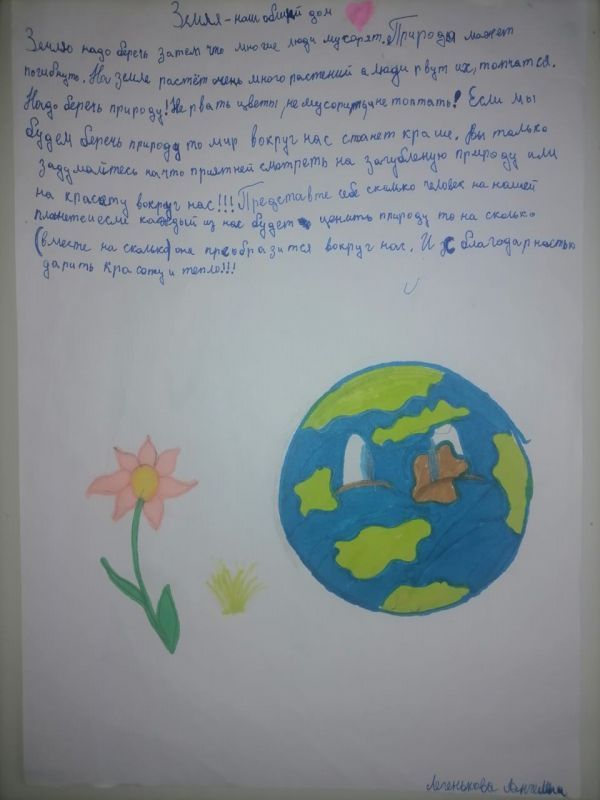 Земля - наш общий дом
Землю надо беречь затем что многие люди мусорят. Природа может
погибнуть. На земле растёт очень много растений а люди рвут их, топчатся.
Надо беречь природу! Не рвать цветы, не мусорить, и не топтать! Если мы
будем беречь природу то мир вокруг нас станет краше. Вы только
задумайтесь на что приятней смотреть на загубленую природу или
на красоту вокруг нас!!! Представте себе сколько человек на нашей
планете и если каждый из нас будет ценить природу то на сколько
(вместе на сколько) она преобразится вокруг нас. И с благодарностью
дарить красоту и тепло!!!
Легенькова Ангелина